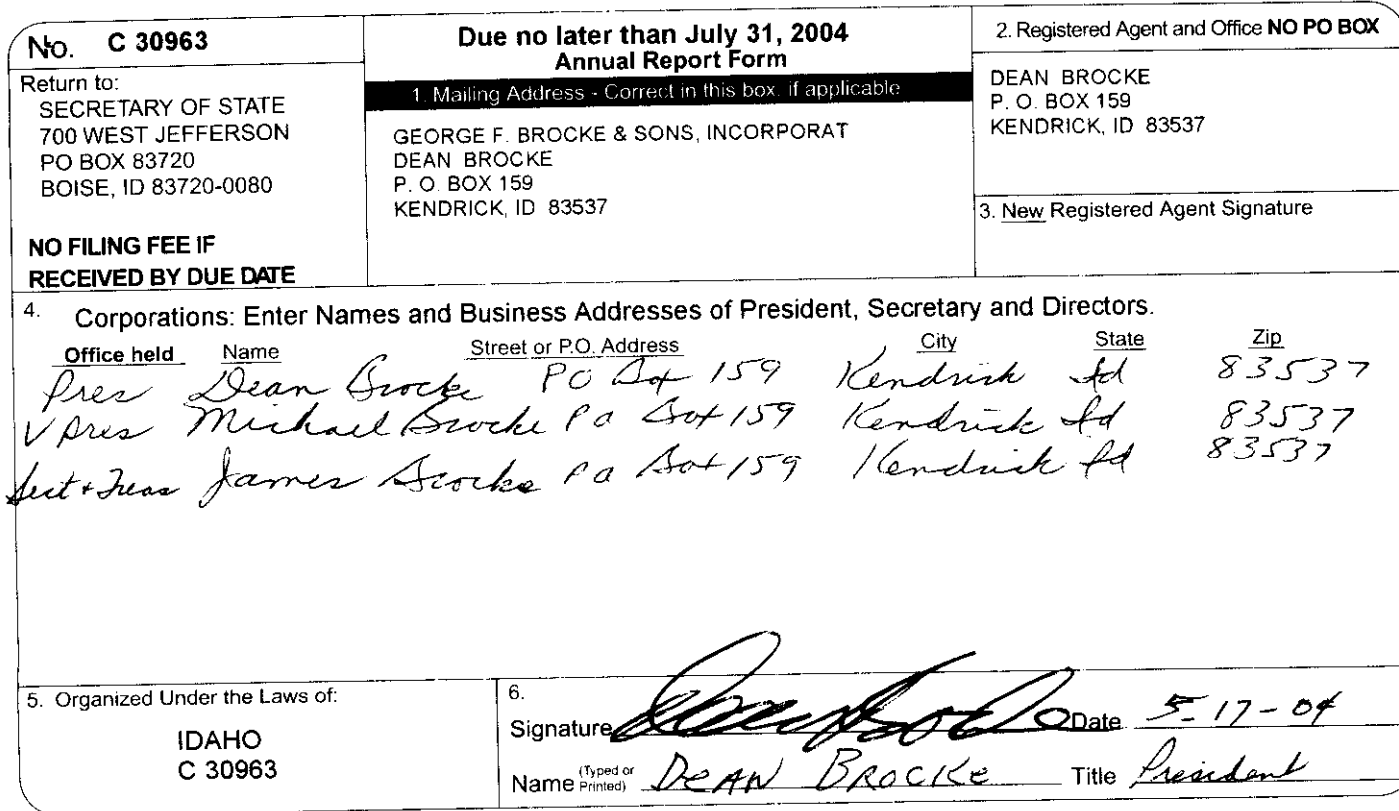 No. C 30963
Return to:
SECRETARY OF STATE
700 WEST JEFFERSON
PO BOX 83720
BOISE, ID 83720-0080
NO FILING FEE IF
RECEIVED BY DUE DATE
Due no later than July 31, 2004
Annual Report Form
1. Mailing Address - Correct in this box, if applicable
GEORGE F. BROCKE & SONS, INCORPORAT
DEAN BROCKE
P. O. BOX 159
KENDRICK, ID 83537
2. Registered Agent and Office NO PO BOX
DEAN BROCKE
P. O. BOX 159
KENDRICK, ID 83537
3. New Registered Agent Signature
4. Corporations: Enter Names and Business Addresses of President, Secretary and Directors.
Office held Name Street or P.O. Address City State Zip
Pres Dean Brocke PO Box 159 Kendrick Id 83537
V Pres Michael Brocke Po Box 159 Kendrick Id 83537
Sect + Treas James Brocke Po Box 159 Kendrick Id 83537
5. Organized Under the Laws of:
IDAHO
C 30963
6.
Signature Dean Brocke Date 5-17-04
Name (Typed or Printed) DeAN BROCKe Title President